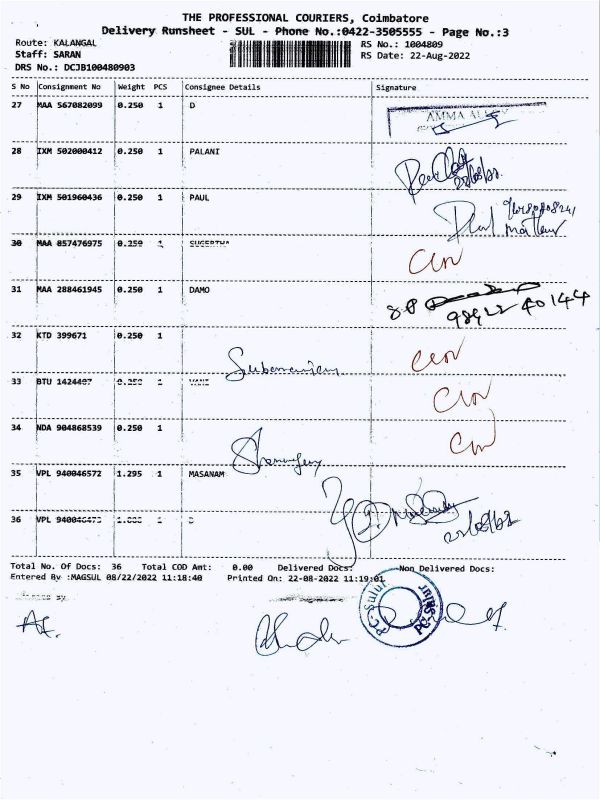 THE PROFESSIONAL COURIERS, Coimbatore
Delivery Runsheet - SUL - Phone No.:0422-3505555 - Page No.:3
Route: KALANGAL RS No.: 1004809
Staff: SARAN RS Date: 22-Aug-2022
DRS No.: DCJB100480903
S No Consignment No Weight PCS Consignee Details Signature
27 MAA 567082099 0.250 1 D
AMMA
28 IXM 502000412 0.250 1 PALANI
22/08/22
29 IXM 501960436 0.250 1 PAUL
Paul
30 MAA 857476975 0.250 1 SUGERTHA
31 MAA 288461945 0.250 1 DAMO
98422 40144
32 KTD 399671 0.250 1
Subramaniam
33 BTU 1424407 0.250 1 VANI
34 NDA 904868539 0.250 1
Shanmugam
35 VPL 940046572 1.295 1 MASANAM
36 VPL 940046473 1
22/08/22
Total No. Of Docs: 36 Total COD Amt: 0.00 Delivered Docs: Non Delivered Docs:
Entered By :MAGSUL 08/22/2022 11:18:40 Printed On: 22-08-2022 11:19:01
PC-Sulur